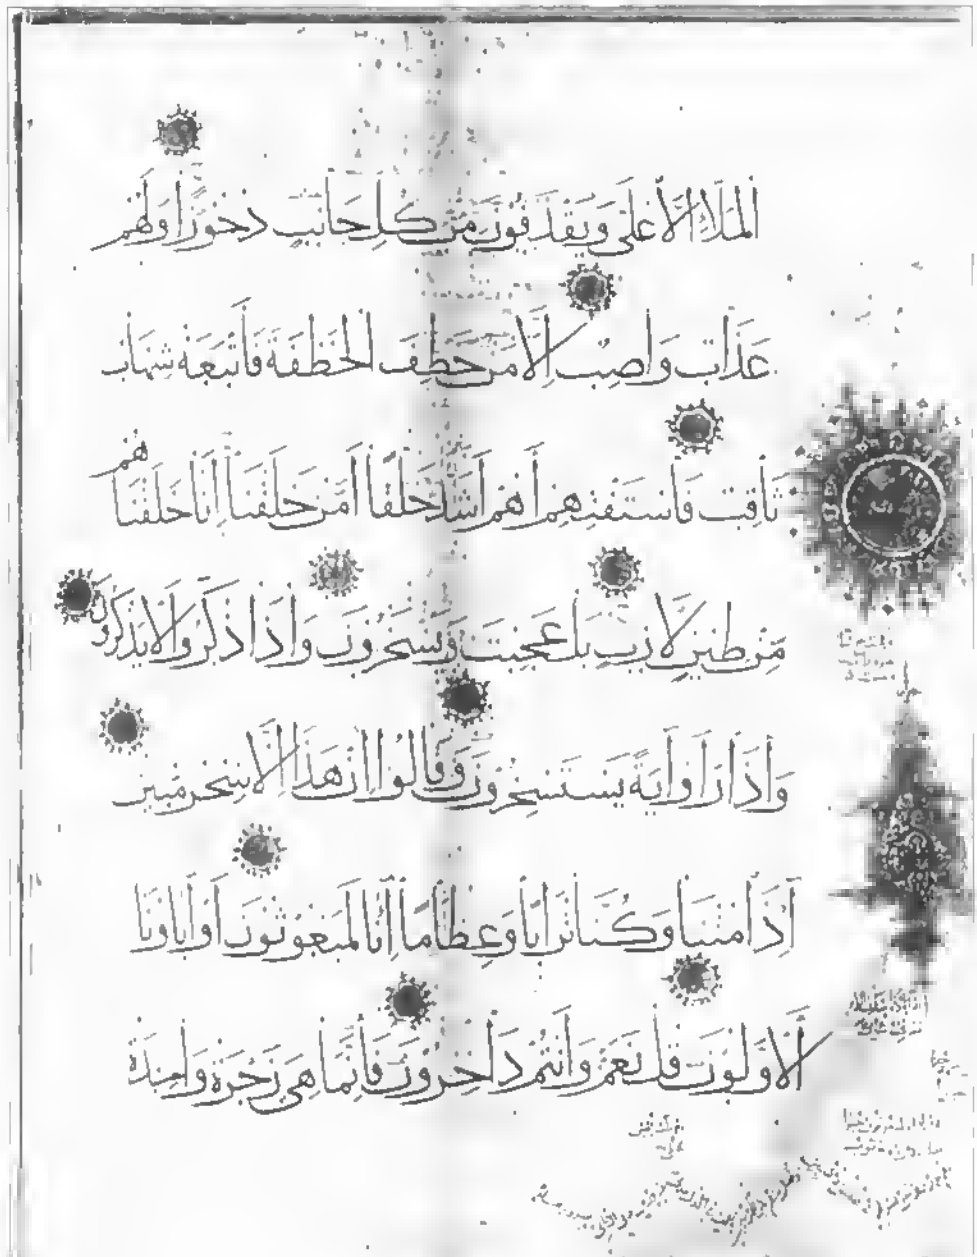 الملإ الأعلى ويقذفون من كل جانب دحورا ولهم
عذاب واصب إلا من خطف الخطفة فأتبعه شهاب
ثاقب فاستفتهم أهم أشد خلقا أم من خلقنا إنا خلقناهم
من طين لازب بل عجبت ويسخرون وإذا ذكروا لا يذكرون
وإذا رأوا آية يستسخرون وقالوا إن هذا إلا سحر مبين
أإذا متنا وكنا ترابا وعظاما أإنا لمبعوثون أو آباؤنا
الأولون قل نعم وأنتم داخرون فإنما هي زجرة واحدة